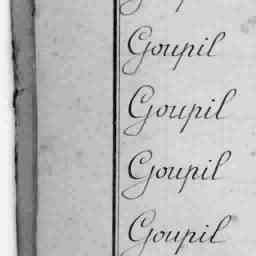 Goupil
Goupil
Goupil
Goupil